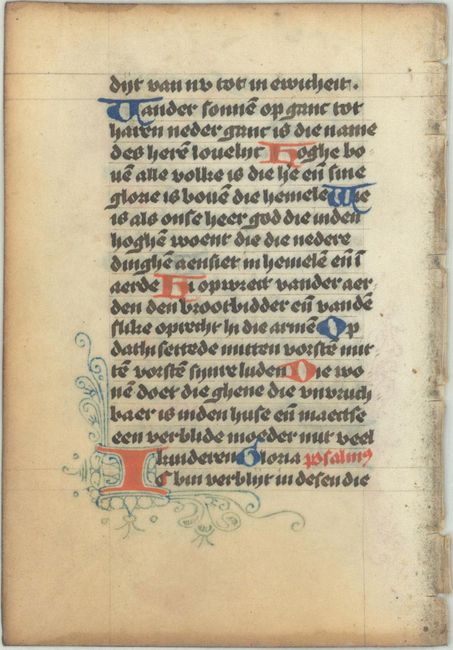 dijt van nv tot in ewicheit.
Uander sonnē op ganc tot
haren neder ganc is die name
des herē louelijc Hoghe bo
uē alle volke is die he eñ sine
glorie is bouē die hemele Wie
is als onse heer god die inden
hoghē woent die die nedere
dinghē aensiet in hemelē eñ ī
aerde Hi opwect vander aer
den den brootbidder eñ vandē
slike oprecht hi die armen Op
dat hi settede mitten vorstē mit
tē vorstē synre luden Die wo
nē doet die ghene die vnvruch
baer is inden huse eñ maectse
een verblide moeder mit veel
kinderen Gloria psalmus
IC bin verblijt in desen die